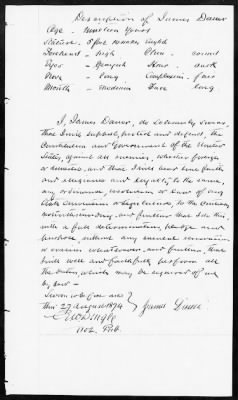 Description of James Dauer
Age - nineteen years
Stature - 5 feet
Forehead - high Chin - round
Eyes - Hair - dark
Nose - long Complexion - fair
Mouth - medium Face - long
I, James Dauer, do solemnly swear,
that I will support, protect and defend, the
Constitution and Government of the United
States, against all enemies, whether foreign
or domestic, and that I will bear true faith
and allegiance and loyalty to the same,
any ordinance, resolution or law of any
State Convention or Legislature, to the contrary
notwithstanding, and further that I do this,
with a full determination, pledge and
purpose, without any mental reservation
or evasion whatsoever, and further that
I will well and faithfully perform all
the duties which may be required of me
by law -
Sworn to before me
this 27 August 1874 James
Not. Pub.